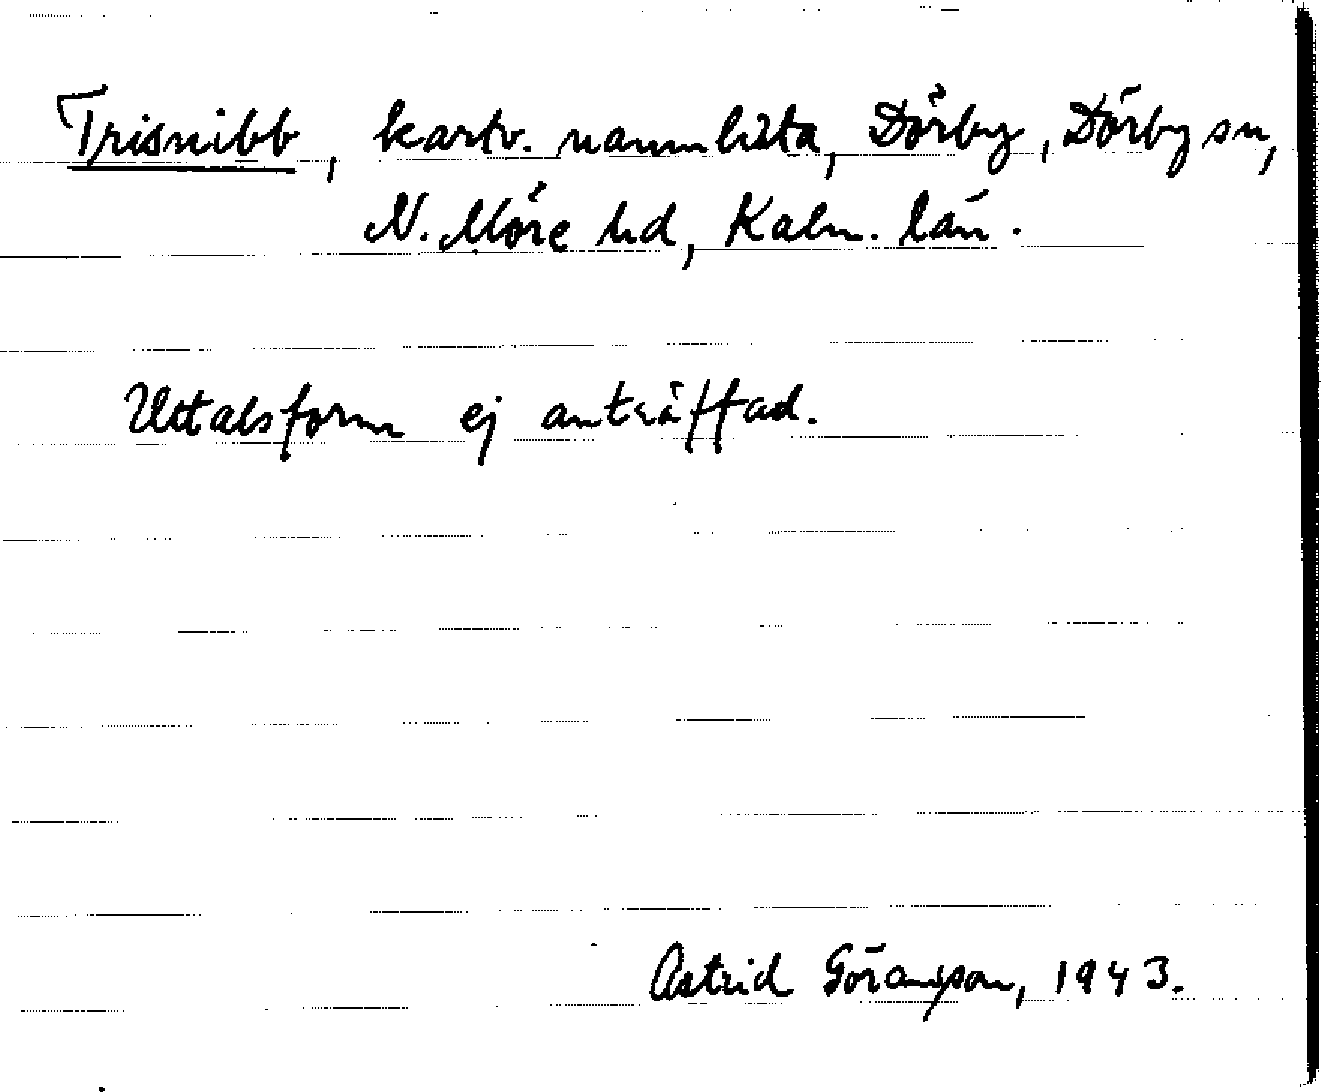 Trisnibb, kartv. namnlista, Dörby, Dörby sn,
N. Möre hd, Kalm. län.
Uttalsform ej anträffad.
Astrid Göransson, 1943.